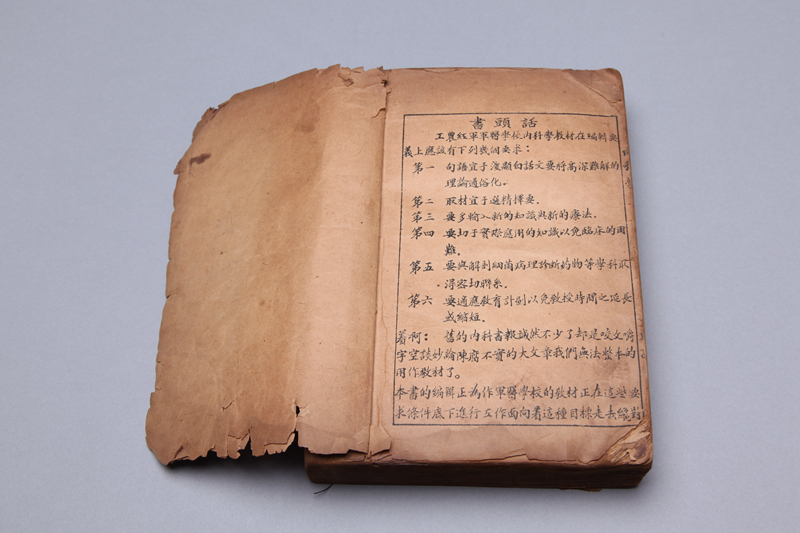 書頭話
工農紅軍軍醫學校內科學教材在編輯要
義上應該有下列幾個要求：
第一 句語宜于淺顯白話文要將高深難解的
理論通俗化。
第二 取材宜于選精擇要．
第三 要多輸入新的知識與新的療法．
第四 要切于實際應用的知識以免臨床的困
難．
第五 要與解剖細菌病理診斷药物等學科取
得密切聯系．
第六 要適應教育計劃以免教授時間之延長
或縮短．
着啊： 舊的内科書報誠然不少了却是咬文嚼
字空談妙論陳腐不實的大文章我們無法整本的
用作教材了。
本書的編輯正為作軍醫學校的教材正在這些要
求條件底下進行工作面向着這種目標走去